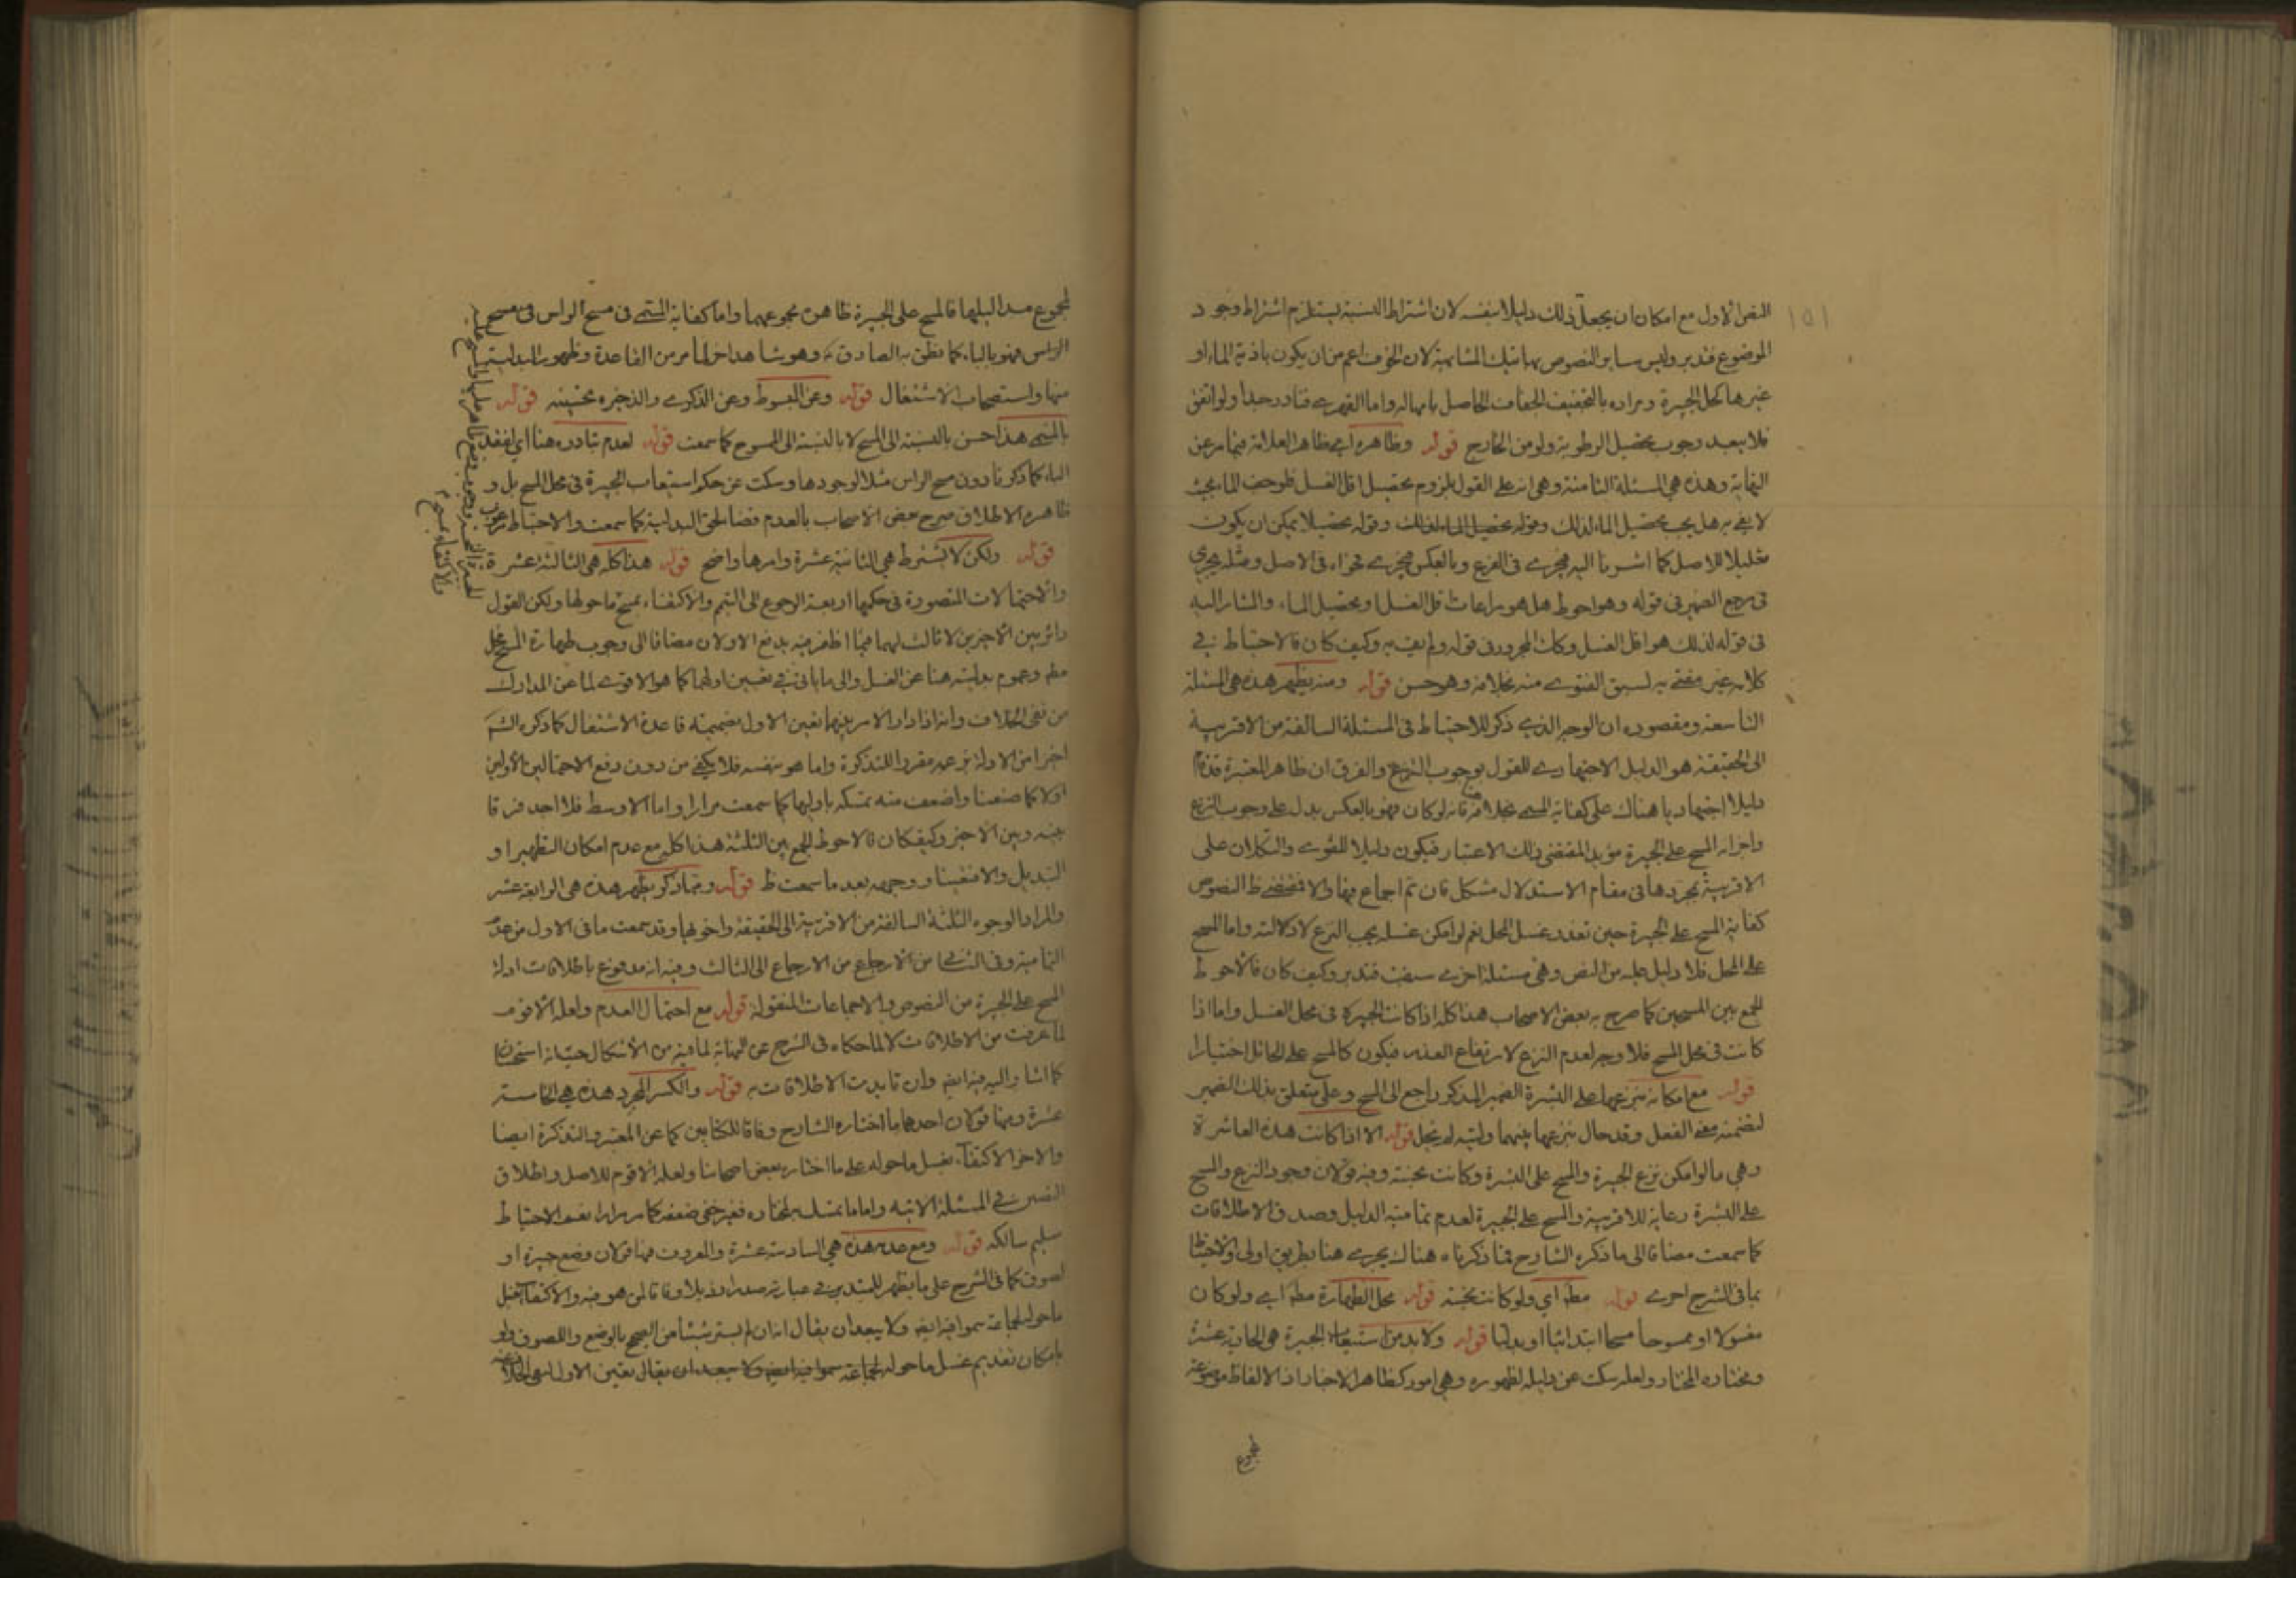 النص الاول مع امكان ان يجعل ذلك دليلا بنفسه لان اشتراط النسبة يستلزم اشتراط وجود
الموضوع فتدبر وليس ساير النصوص بهاتيك المشابهة لان الخوف اعم من ان يكون باذية الماء او
غيرها كحل الجبيرة ومراده بالتخفيف الجفاف الحاصل بامهاله واما القهرى فنادر جدا ولو اتفق
فلا يبعد وجوب تحصيل الرطوبة ولو من الخارج قوله وظاهره اى ظاهر العلامة فيما مر عن
النهاية وهذه هى المسئلة الثامنة وهى انه على القول بلزوم تحصيل اقل الغسل لو جف الماء بحيث
لا يفى به هل يجب تحصيل الماء لذلك وقوله تحصيلا يمكن ان يكون
تعليلا للاصل كما اشرنا اليه فيجرى فى الفرع وبالعكس فيجرى نحواه فى الاصل ومثله يجرى
فى مرجع الضمير فى قوله وهو احوط هل هو مراعات اقل الغسل او تحصيل الماء والمشار اليه
فى قوله لذلك هو اقل الغسل وكان المجرور فى قوله ولم يف به وكيف كان فالاحتياط فى
كلامه غير مفتى به لسبق الفتوى منه بخلافه وهو حسن قوله ومنه يظهر هذه هى المسئلة
التاسعة ومقصوده ان الوجه الذى ذكر للاحتياط فى المسئلة السالفة من الاقربية
الى الحقيقة هو الدليل الاجتهادى للقول بوجوب النزع والفرق ان ظاهر المعتبرة
دليلا اجتهاديا هناك على كفاية المسح بخلافه فانه لو كان فهو بالعكس يدل على وجوب النزع
واجزاء المسح على الجبيرة مؤيد المقتضى ذلك الاعتبار فيكون دليلا للفتوى والتكلان على
الاقربية بمجردها فى مقام الاستدلال مشكل فان تم اجماع فيها والا فمقتضى ظ النصوص
كفاية المسح على الجبيرة حين تعذر غسل المحل نعم لو امكن غسله يجب النزع لا دلالته واما المسح
على المحل فلا دليل عليه من النص وهى مسئلة اخرى سبقت فتدبر وكيف كان فالاحوط
الجمع بين المسحين كما صرح به بعض الاصحاب هذا كله اذا كانت الجبيرة فى محل الغسل واما اذا
كانت فى محل المسح فلا وجه لعدم النزع لارتفاع العذر فيكون كالمسح على الحائل اختيارا
قوله مع امكانه بنزعها على البشرة الضمير المذكور راجع الى المسح وعلى متعلق بذلك الضمير
لتضمنه معنى الفعل وقد حال بنزعها بينهما وليته لم يحل قوله الا اذا كانت هذه العاشرة
وهى ما لو امكن نزع الجبيرة والمسح على البشرة وكانت نجسة وفيه قولان وجوب النزع والمسح
على البشرة رعاية للاقربية والمسح على الجبيرة لعدم تمامية الدليل وصدق الاطلاقات
كما سمعت مضافا الى ما ذكره الشارح فما ذكرناه هناك يجرى هنا بطريق اولى والاحتياط
بما فى الشرح احرى قوله مطه اى ولو كانت نجسة قوله محل الطهارة مطه اى ولو كان
مغسولا او ممسوحا مسحا ابتدائيا او بدليا قوله ولا بد من استيعاب الجبيرة هى الحادية عشرة
ومختاره المختار ولعله سكت عن دليله لظهوره وهى امور كظاهر الاخبار اذ الالفاظ موضوعة
لمجموع
لمجموع مداليلها فالمسح على الجبيرة ظاهرة مجموعهما واما كفاية المسمى فى مسح الراس فى مسح
الراس فهو بالباء كما نطق به الصادق ع وهو شاهد اخر لما مر من القاعدة وظهور البدلية
منها واستصحاب الاشتغال قوله وعن المبسوط وعن الذكرى والذخيرة تحسينه قوله
بالمسح هذا حسن بالنسبة الى المسح لا بالنسبة الى الممسوح كما سمعت قوله لعدم تبادره هنا اى لفقد
الباء كما ذكرنا دون مسح الراس مثلا لوجودها وسكت عن حكم استيعاب الجبيرة فى محل المسح بل و
ظاهره الاطلاق صرح بعض الاصحاب بالعدم قضاء لحق البدلية كما سمعت والاحتياط
قوله ولكن لا يشترط هى الثانية عشرة وامرها واضح قوله هذا كله هى الثالثة عشرة
والاحتمالات المتصورة فى حكمها اربعة الرجوع الى التيمم والاكتفاء بمسح ما حولها ولكن القول
دائر بين الاخيرين لا ثالث لهما فيما اظفر فيه يدفع الاولان مضافا الى وجوب طهارة المسح محل
مطه وعموم بدليته هنا عن الغسل والى ما ياتى فى تعيين اولهما كما هو الاقوى لما عن المدارك
من نفى الخلاف وانه اذا دار الامر بينهما تعين الاول بضميمة قاعدة الاشتغال كما ذكره الشم
اخرا من الادلة بزعمه مقررا للتذكرة واما هو بنفسه فلا يكفى من دون دفع الاحتمالين الاولين
اولا كما صنعنا واضعف منه تمسكه باولهما كما سمعت مرارا واما الاوسط فلا اجد فرقا
بينه وبين الاخير وكيف كان فالاحوط الجمع بين الثلثة هذا كله مع عدم امكان التطهير او
التبديل والا تعينا ووجهه بعد ما سمعت ظ قوله ومما ذكر يظهر هذه هى الرابعة عشر
والمراد الوجوه الثلثة السالفة من الاقربية الى الحقيقة واخويها وقد سمعت ما فى الاول من عدم
التمامية وفى الثانى من الارجاع الى الثالث وفيه انه مدفوع باطلاقات ادلة
المسح على الجبيرة من النصوص والاجماعات المنقولة قوله مع احتمال العدم ولعله الاقوى
لما عرفت من الاطلاقات لا لما حكاه فى الشرح عن النهاية لما فيه من الاشكال
كما اشار اليه فيه ايضم وان تايدت الاطلاقات به قوله والكسر المجرد هذه هى الخامسة
عشرة وفيها قولان احدهما ما اختاره الشارح وفاقا للكتابين كما عن المعتبر والتذكرة ايضا
والاخر الاكتفاء بغسل ما حوله على ما اختاره بعض اصحابنا ولعله الاقوم للاصل واطلاق
النصين فى المسئلة الاتية واما ما تمسك به لمختاره فغير خفى ضعفه كما مر مرارا نعم الاحتياط
سليم سالكه قوله ومع عدمه هذه هى السادسة عشرة والمعروف فيها قولان وضع جبيرة او
لصوق كما فى الشرح على ما يظهر للمتدبر فى عبارته صدرا وذيلا وفاقا لمن هو فيه والاكتفاء بغسل
ما حوله لجماعة سموا فيه ايضم ولا يبعد ان يقال انه ان لم يستر شيئا من الصحيح بالوضع واللصوق ولو
بامكان تقديم غسل ما حوله لجماعة سموا فيه ايضم ولا يبعد ان يقال تعين الاول
والاكتفاء بمسح